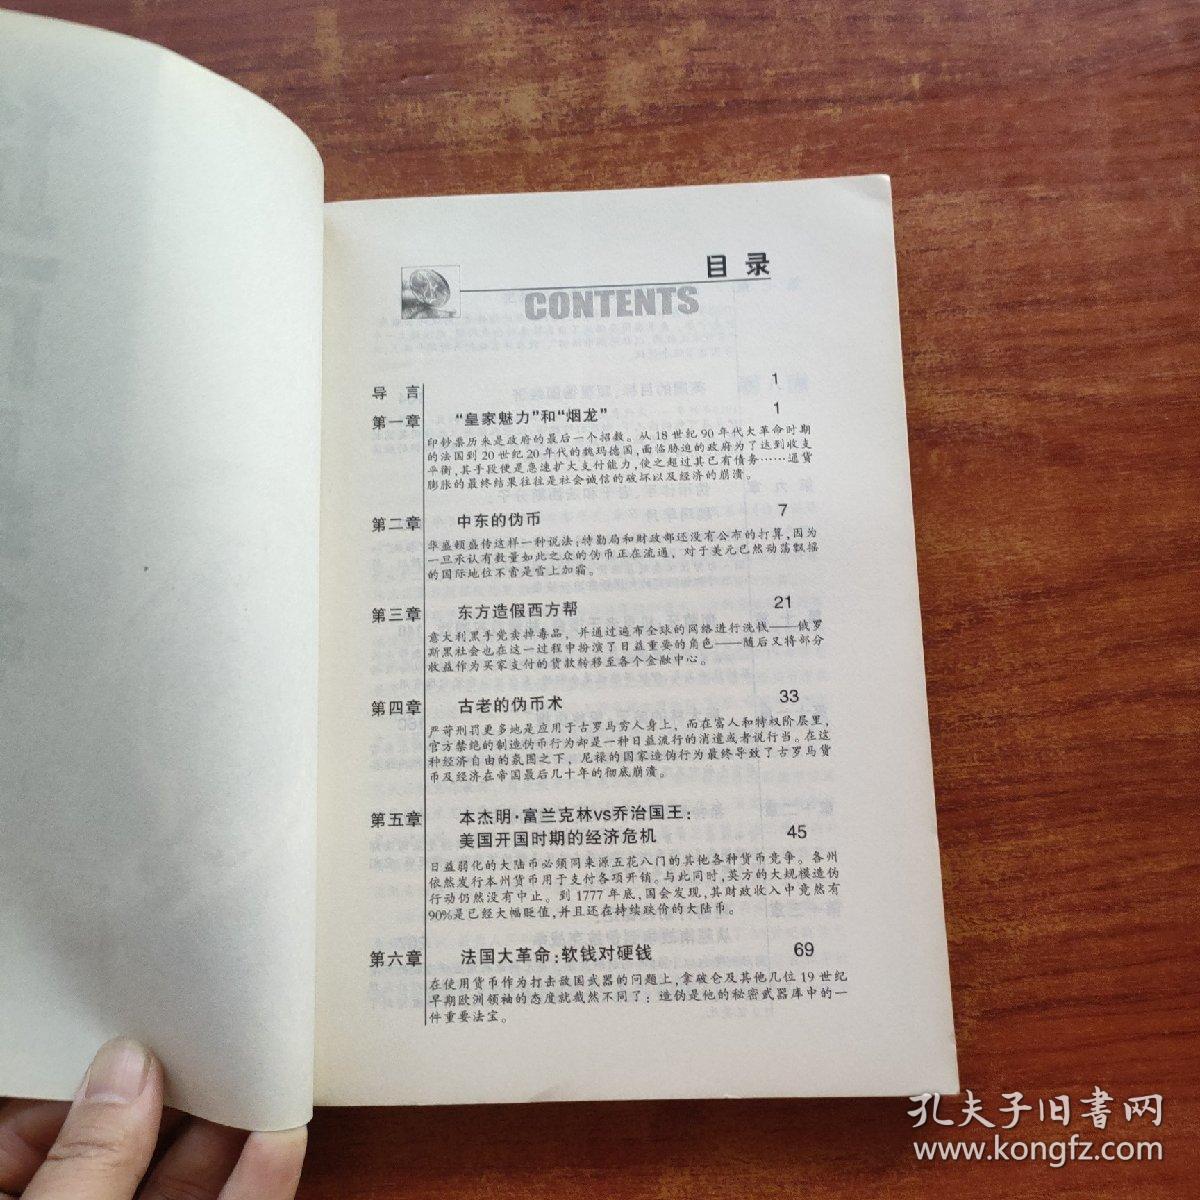 目 录
CONTENTS
导 言 1
第一章 “皇家魅力”和“烟龙” 1
印钞票历来是政府的最后一个招数。从18世纪90年代大革命时期
的法国到20世纪20年代的魏玛德国，面临胁迫的政府为了达到收支
平衡，其手段便是急速扩大支付能力，使之超过其已有债务……通货
膨胀的最终结果往往是社会诚信的破坏以及经济的崩溃。
第二章 中东的伪币 7
华盛顿盛传这样一种说法：特勤局和财政部还没有公布的打算，因为
一旦承认有数量如此之众的伪币正在流通，对于美元已然动荡飘摇
的国际地位不啻是雪上加霜。
第三章 东方造假西方帮 21
意大利黑手党卖掉毒品，并通过遍布全球的网络进行洗钱——俄罗
斯黑社会也在这一过程中扮演了日益重要的角色——随后又将部分
收益作为买家支付的货款转移至各个金融中心。
第四章 古老的伪币术 33
严苛刑罚更多地是应用于古罗马穷人身上，而在富人和特权阶层里，
官方禁绝的制造伪币行为却是一种日益流行的消遣或者说行当。在这
种经济自由的氛围之下，尼禄的国家造伪行为最终导致了古罗马货
币及经济在帝国最后几十年的彻底崩溃。
第五章 本杰明·富兰克林vs乔治国王：
美国开国时期的经济危机 45
日益弱化的大陆币必须同来源五花八门的其他各种货币竞争。各州
依然发行本州货币用于支付各项开销。与此同时，英方的大规模造伪
行动仍然没有中止。到1777年底，国会发现，其财政收入中竟然有
90%是已经大幅贬值，并且还在持续跌价的大陆币。
第六章 法国大革命：软钱对硬钱 69
在使用货币作为打击敌国武器的问题上，拿破仑及其他几位19世纪
早期欧洲领袖的态度就截然不同了：造伪是他的秘密武器库中的一
件重要法宝。
孔夫子旧书网
www.kongfz.com